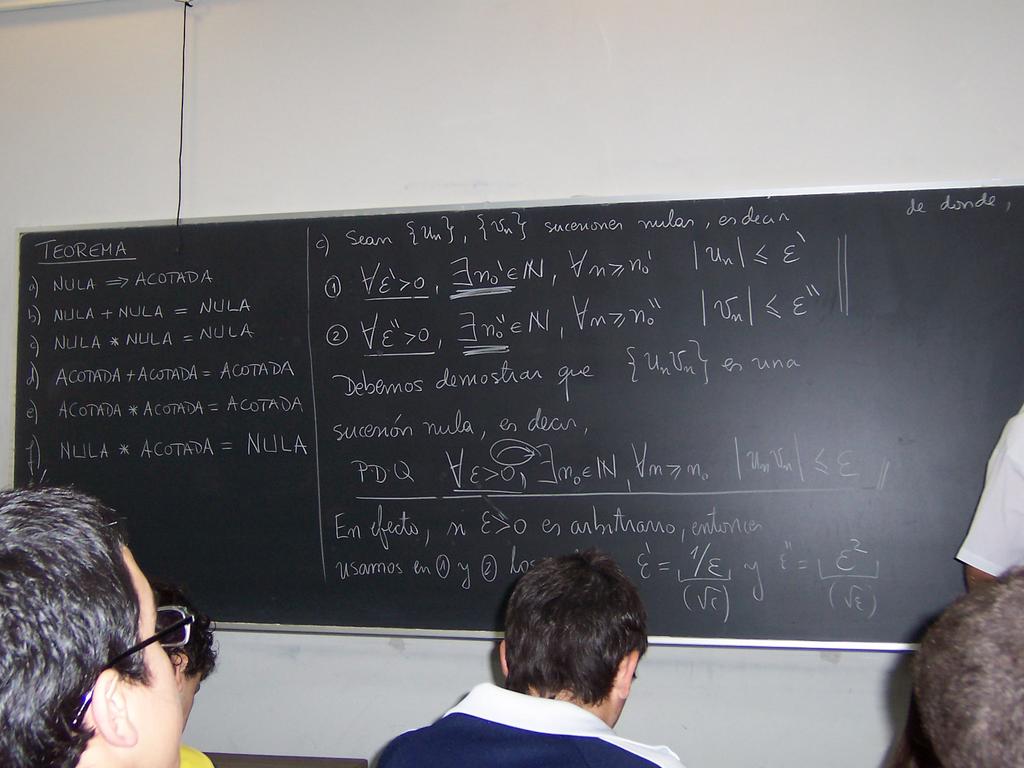 TEOREMA
a) NULA ⇒ ACOTADA
b) NULA + NULA = NULA
c) NULA * NULA = NULA
d) ACOTADA + ACOTADA = ACOTADA
e) ACOTADA * ACOTADA = ACOTADA
f) NULA * ACOTADA = NULA
c) Sean {un}, {vn} sucesiones nulas, es decir
① ∀ε'>0, ∃n₀'∈ℕ, ∀n≥n₀' |un| ≤ ε'
② ∀ε''>0, ∃n₀''∈ℕ, ∀n≥n₀'' |vn| ≤ ε''
Debemos demostrar que {unvn} es una
sucesión nula, es decir,
PDQ ∀ε>0, ∃n₀∈ℕ, ∀n≥n₀ |unvn| ≤ ε
En efecto, si ε>0 es arbitrario, entonces
usamos en ① y ② los ε' = 1/ε y ε'' = ε²
(√ε) (√ε)
de donde,